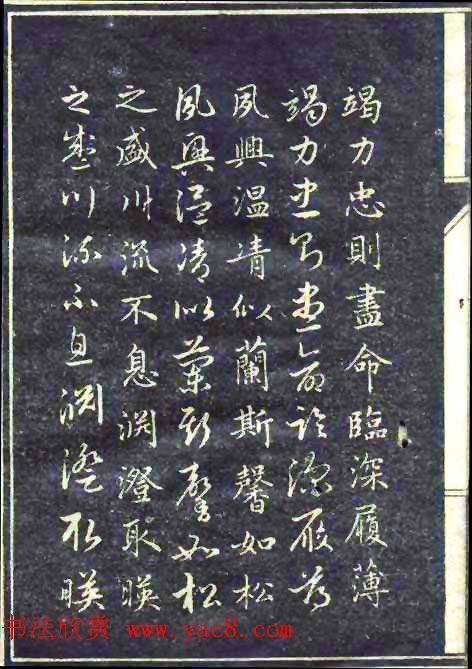 竭力忠則盡命臨深履薄
竭力忠則盡命臨深履薄
夙興溫凊似蘭斯馨如松
夙興溫凊似蘭斯馨如松
之盛川流不息渊澄取暎
之盛川流不息渊澄取暎
书法欣赏 www.yac8.com